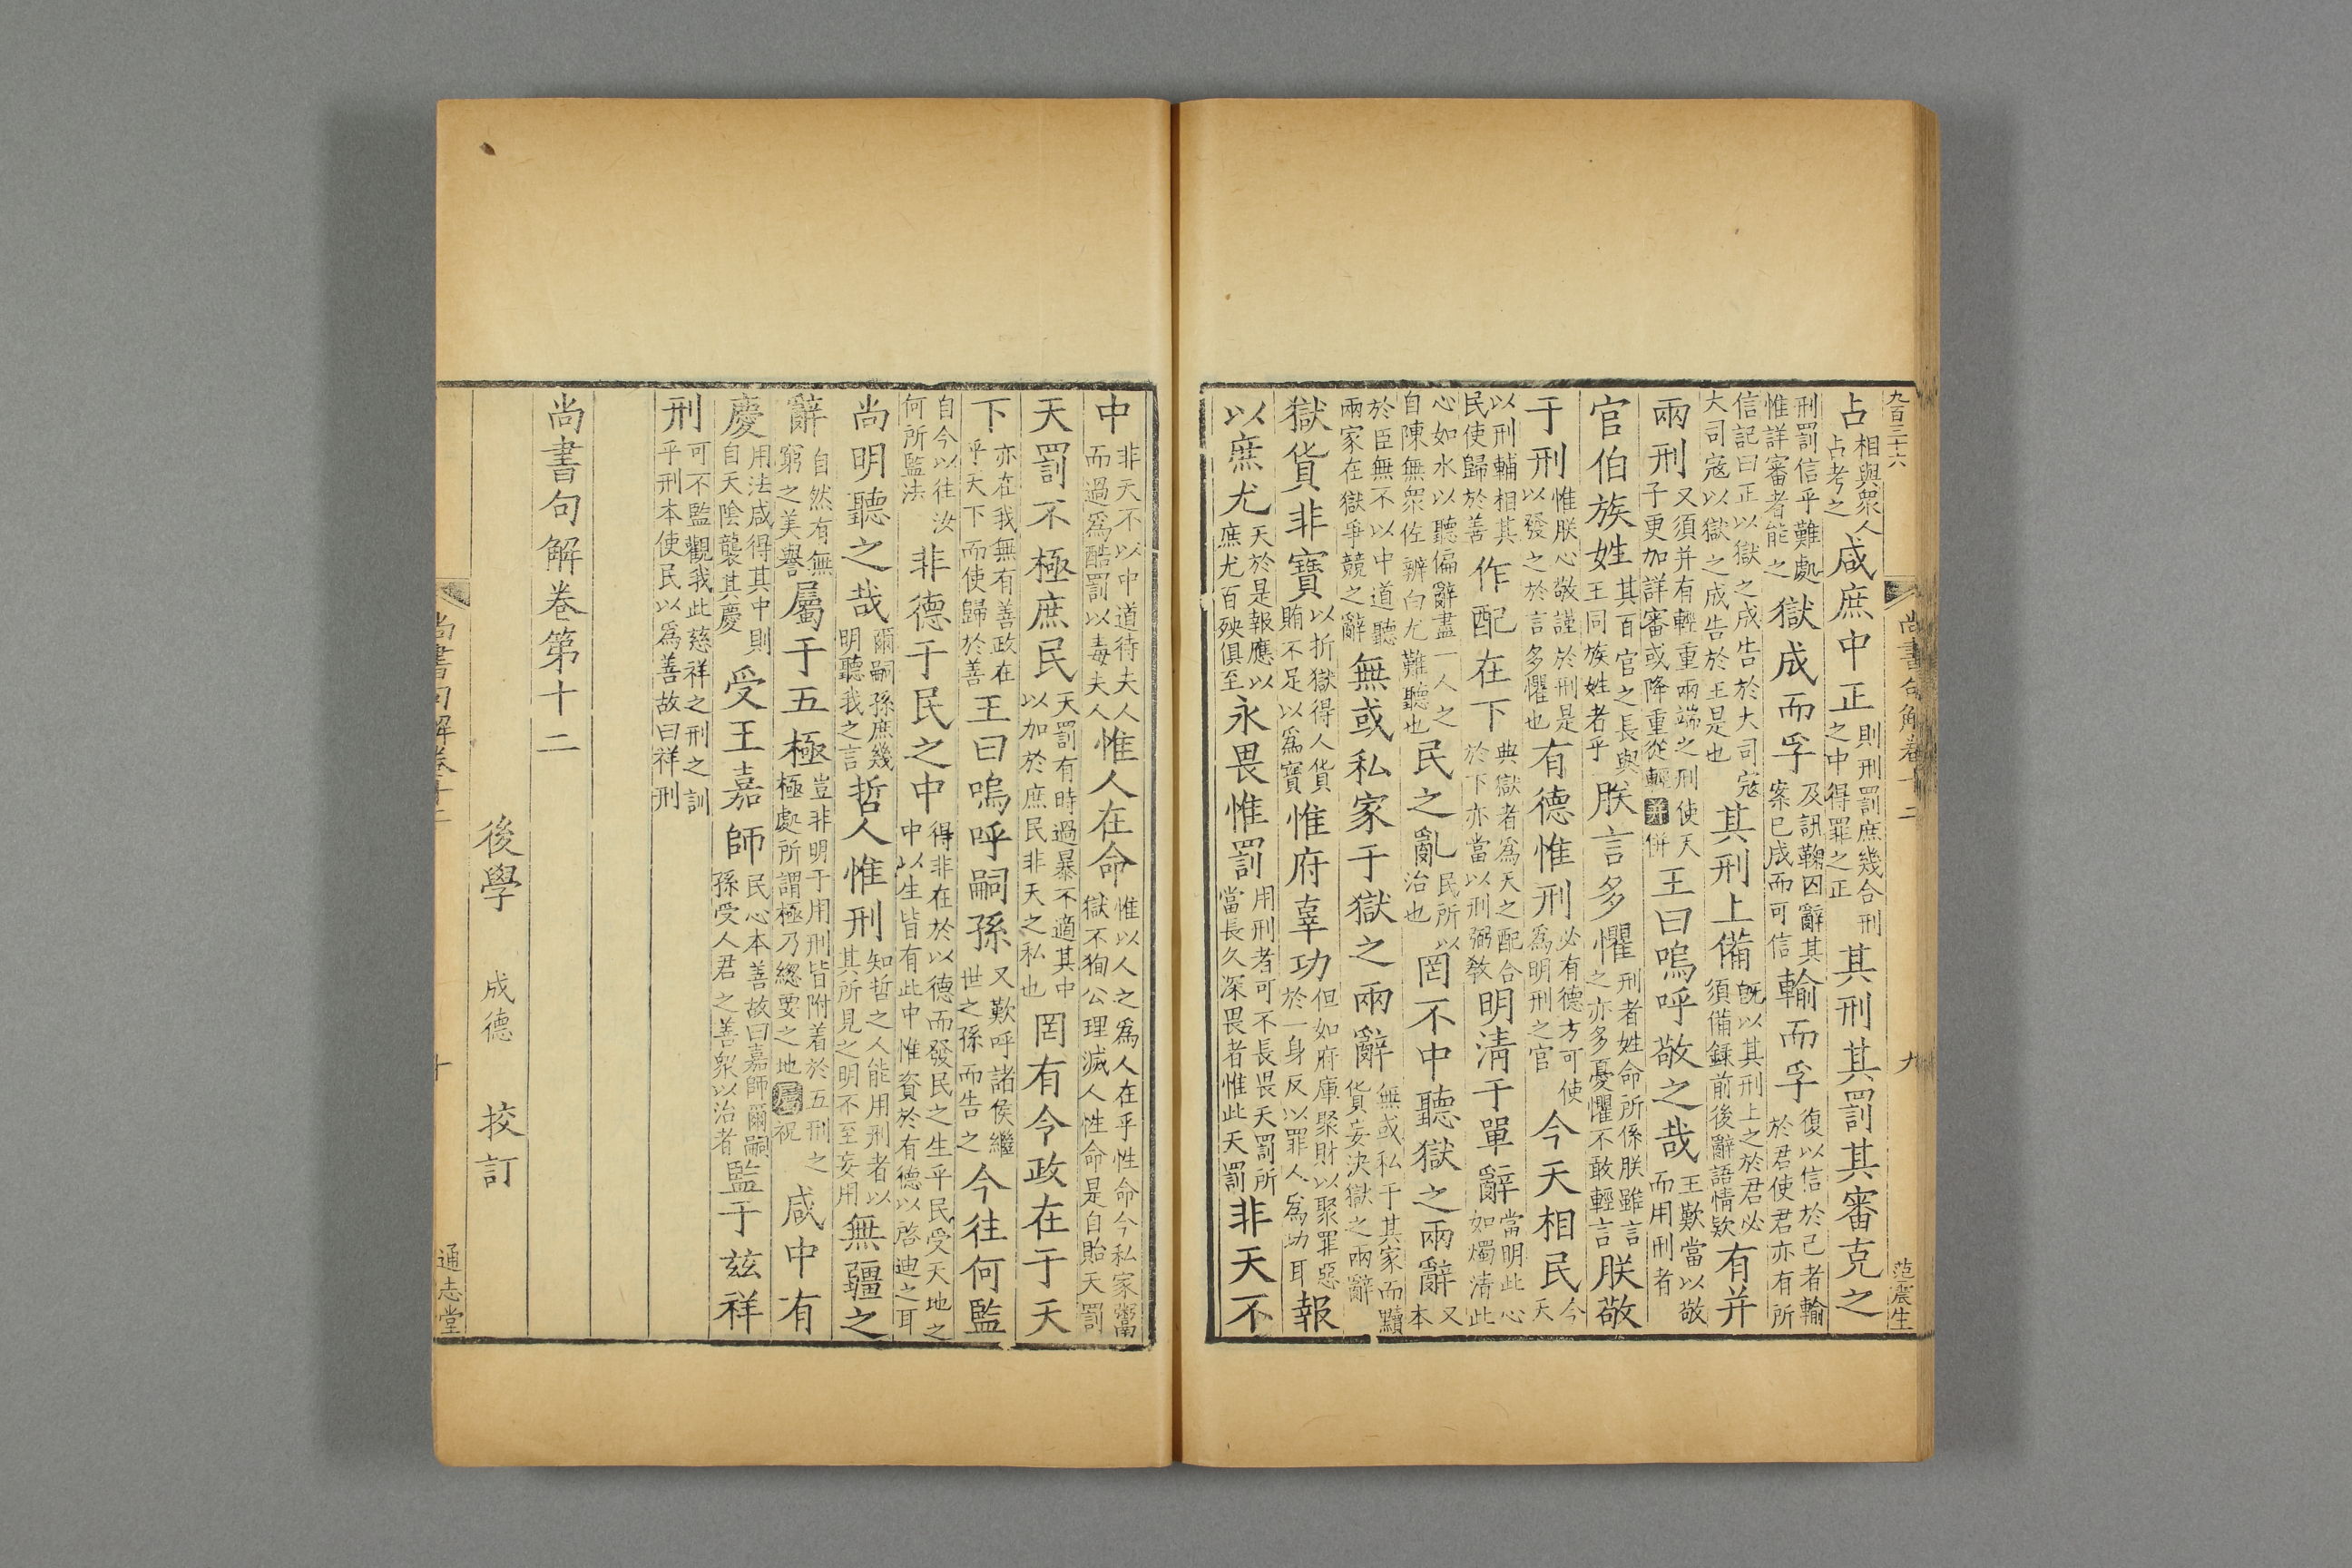 九百三十六
尚書句解卷十二
九
范震生
占相與衆人占考之咸庶中正則刑罰庶幾合刑之中得罪之正其刑其罰其審克之
刑罰信乎難處惟詳審者能之獄成而孚及訊鞫囚辭其案已成而可信輸而孚復以信於己者輸於君使君亦有所
信記曰正以獄之成告於大司寇大司寇以獄之成告於王是也其刑上備旣以其刑上之於君必須備錄前後辭語情欵有并
兩刑又須并有輕重兩端之刑使天子更加詳審或降重從輕并併王曰嗚呼敬之哉王歎當以敬而用刑者
官伯族姓其百官之長與王同族姓者乎朕言多懼刑者姓命所係朕雖言之亦多憂懼不敢輕言朕敬
于刑惟朕心敬謹於刑是以發之於言多懼也有德惟刑必有德方可使爲明刑之官今天相民今天
以刑輔相其民使歸於善作配在下典獄者爲天之配合於下亦當以刑弼敎明清于單辭當明此心如燭清此
心如水以聽偏辭盡一人之自陳無衆佐辨白尤難聽也民之亂民所以治也罔不中聽獄之兩辭又本
於臣無不以中道聽兩家在獄爭競之辭無或私家于獄之兩辭無或私于其家而黷貨妄決獄之兩辭
獄貨非寶以折獄得人貨賄不足以爲寶惟府辜功但如府庫聚財以聚罪惡於一身反以罪人爲功耳報
以庶尤天於是報應以庶尤百殃俱至永畏惟罰用刑者可不長畏天罰所當長久深畏者惟此天罰非天不
中非天不以中道待夫人而過爲酷罰以毒夫人惟人在命惟以人之爲人在乎性命今私家鬻獄不狥公理滅人性命是自貽天罰
天罰不極庶民天罰有時過暴不適其中以加於庶民非天之私也罔有令政在于天
下亦在我無有善政在乎天下而使歸於善王曰嗚呼嗣孫又歎呼諸侯繼世之孫而告之今往何監
自今以往汝何所監法非德于民之中得非在於以德而發民之生乎民受天地之中以生皆有此中惟資於有德以啓迪之耳
尚明聽之哉爾嗣孫庶幾明聽我之言哲人惟刑知哲之人能用刑者以其所見之明不至妄用無疆之
辭自然有無窮之美譽屬于五極豈非明于用刑皆附着於五刑之極處所謂極乃總要之地屬祝咸中有
慶用法咸得其中則自天陰襲其慶受王嘉師民心本善故曰嘉師爾嗣孫受人君之善衆以治者監于兹祥
刑可不監觀我此慈祥之刑之訓乎刑本使民以爲善故曰祥刑
尚書句解卷第十二
後學 成德 挍訂
尚書句解卷十二
十
通志堂